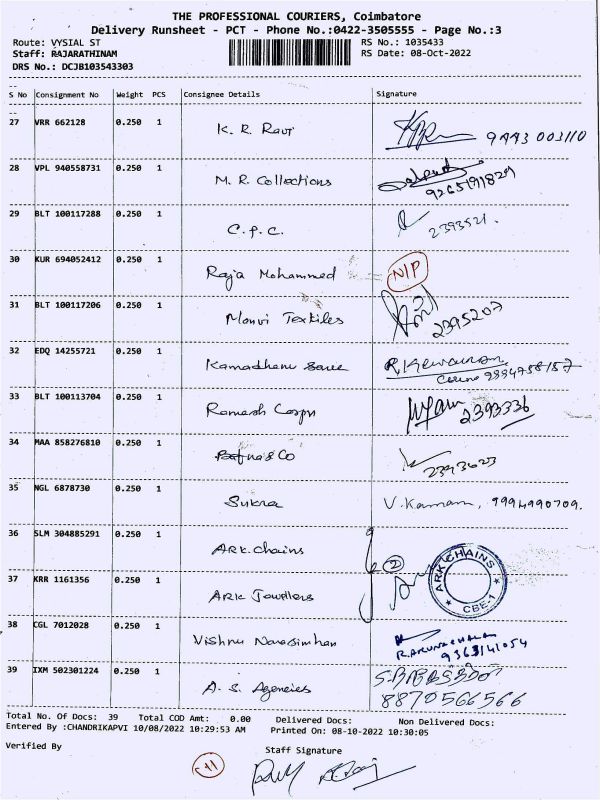 THE PROFESSIONAL COURIERS, Coimbatore
Delivery Runsheet - PCT - Phone No.:0422-3505555 - Page No.:3
Route: VYSIAL ST RS No.: 1035433
Staff: RAJARATHINAM RS Date: 08-Oct-2022
DRS No.: DCJB103543303
S No Consignment No Weight PCS Consignee Details Signature
27 VRR 662128 0.250 1 K. R. Ravi 9443 003110
28 VPL 940558731 0.250 1 M. R. Collections 9265191829
29 BLT 100117288 0.250 1 C.P.C. 2393521.
30 KUR 694052412 0.250 1 Raja Mohammed N/P
31 BLT 100117206 0.250 1 Manvi Textiles 2395207
32 EDQ 14255721 0.250 1 Kamadhenu Saree
33 BLT 100113704 0.250 1 Ramesh Corpn 2393336
34 MAA 858276810 0.250 1 & Co
35 NGL 6878730 0.250 1 Sukra V. Kannan, 9994990709.
36 SLM 304885291 0.250 1 ARK. Chains 2
37 KRR 1161356 0.250 1 ARK Jewellers ARK CHAINS CBE-1
38 CGL 7012028 0.250 1 Vishnu Narasimhan R. ARUNACHALAM
9363141054
39 IXM 502301224 0.250 1 A. S. Agencies
8870566566
Total No. Of Docs: 39 Total COD Amt: 0.00 Delivered Docs: Non Delivered Docs:
Entered By :CHANDRIKAPVI 10/08/2022 10:29:53 AM Printed On: 08-10-2022 10:30:05
Verified By Staff Signature